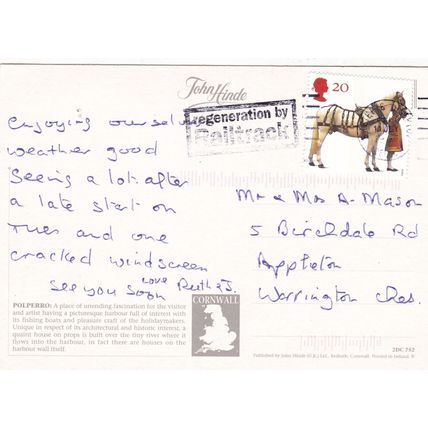 John Hinde
regeneration by
Railtrack
20
enjoying ourselves
weather good
Seeing a lot after
a late start on
Tues and one
cracked windscreen
See you soon love Ruth & J.
Mr & Mrs A. Mason
5 Birchdale Rd
Appleton
Warrington Ches.
POLPERRO: A place of unending fascination for the visitor
and artist having a picturesque harbour full of interest with
its fishing boats and pleasure craft of the holidaymakers.
Unique in respect of its architectural and historic interest, a
quaint house on props is built over the tiny river where it
flows into the harbour, in fact there are houses on the
harbour wall itself.
CORNWALL
2DC 752
Published by John Hinde (U.K.) Ltd., Redruth, Cornwall. Printed in Ireland.